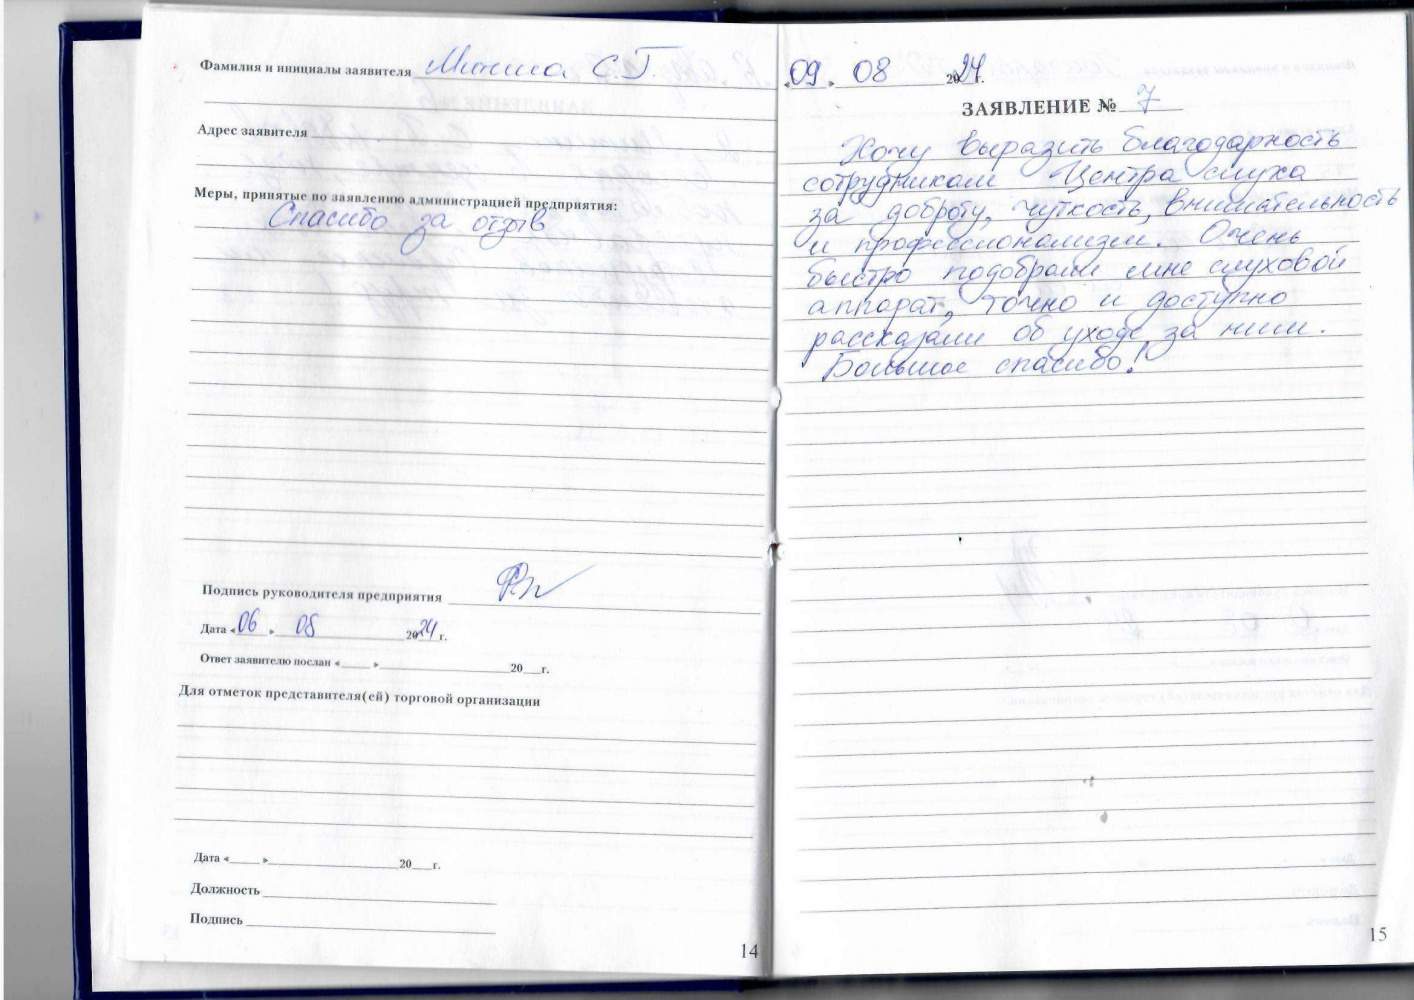 Фамилия и инициалы заявителя С.Г.
Адрес заявителя
Меры, принятые по заявлению администрацией предприятия:
Спасибо за отзыв
Подпись руководителя предприятия
Дата «06» 08 2024 г.
Ответ заявителю послан «___» ___ 20__г.
Для отметок представителя(ей) торговой организации
Дата «___» ___ 20__г.
Должность
Подпись
14
«09» 08 2024г.
ЗАЯВЛЕНИЕ № 7
Хочу выразить благодарность
сотрудникам Центра слуха
за доброту, чуткость, внимательность
и профессионализм. Очень
быстро подобрали мне слуховой
аппарат, точно и доступно
рассказали об уходе за ним.
Большое спасибо!
15